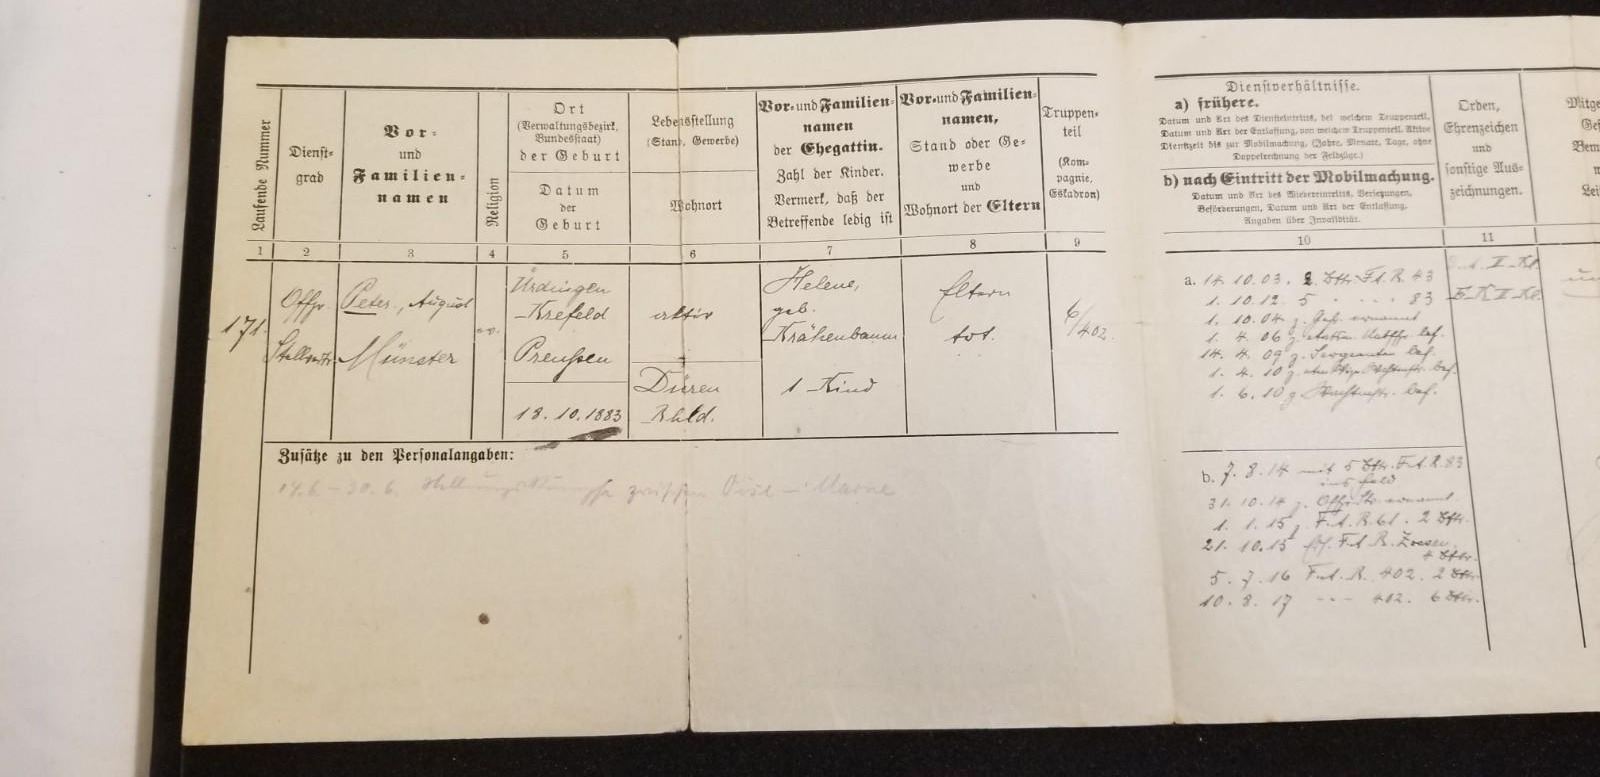 Laufende Nummer
Dienst-
grad
Vor-
und
Familien-
namen
Religion
Ort
(Verwaltungsbezirk,
Bundesstaat)
der Geburt
Datum
der
Geburt
Lebensstellung
(Stand, Gewerbe)
Wohnort
Vor- und Familien-
namen
der Ehegattin.
Zahl der Kinder.
Vermerk, daß der
Betreffende ledig ist
Vor- und Familien-
namen,
Stand oder Ge-
werbe
und
Wohnort der Eltern
Truppen-
teil
(Kom-
pagnie,
Eskadron)
Dienstverhältnisse.
a) frühere.
Datum und Art des Diensteintritts, bei welchem Truppenteil,
Datum und Art der Entlassung, von welchem Truppenteil. Aktive
Dienstzeit bis zur Mobilmachung, (Jahre, Monate, Tage, ohne
Doppelrechnung der Feldzüge.)
b) nach Eintritt der Mobilmachung.
Datum und Art des Wiedereintritts, Versetzungen,
Beförderungen, Datum und Art der Entlassung,
Angaben über Invalidität.
Orden,
Ehrenzeichen
und
sonstige Aus-
zeichnungen.
1 2 3 4 5 6 7 8 9 10 11
171.
Offz.
Stellvertr.
Peter, August
Münster
ev.
Ürdingen
Krefeld
Preußen
18. 10. 1883
aktiv
Düren
Rhld.
Helene,
geb.
Krähenbaum
1 Kind
Eltern
tot.
6/402.
a. 14. 10. 03. 2 Bttr. F.A.R. 43
1. 10. 12. 5 " " " 83
1. 10. 04 z. Gefr. ernannt
1. 4. 06 z. Untffz. bef.
14. 4. 09 z. Sergeanten bef.
1. 4. 10 z. bef.
1. 6. 10 z. Wachtmstr. bef.
E. K. II. Kl.
b. 7. 8. 14 mit 5 Bttr. F.A.R. 83
ins Feld
31. 10. 14 z. Offz. Stv. ernannt.
1. 1. 15 z. F.A.R. 61. 2 Bttr.
21. 10. 15 F.A.R. Zossen
4 Bttr.
5. 7. 16 F.A.R. 402. 2 Bttr.
10. 8. 17 " " " 402. 6 Bttr.
Zusätze zu den Personalangaben:
14.6 – 30.6. Stellungskämpfe zwischen Oise – Marne